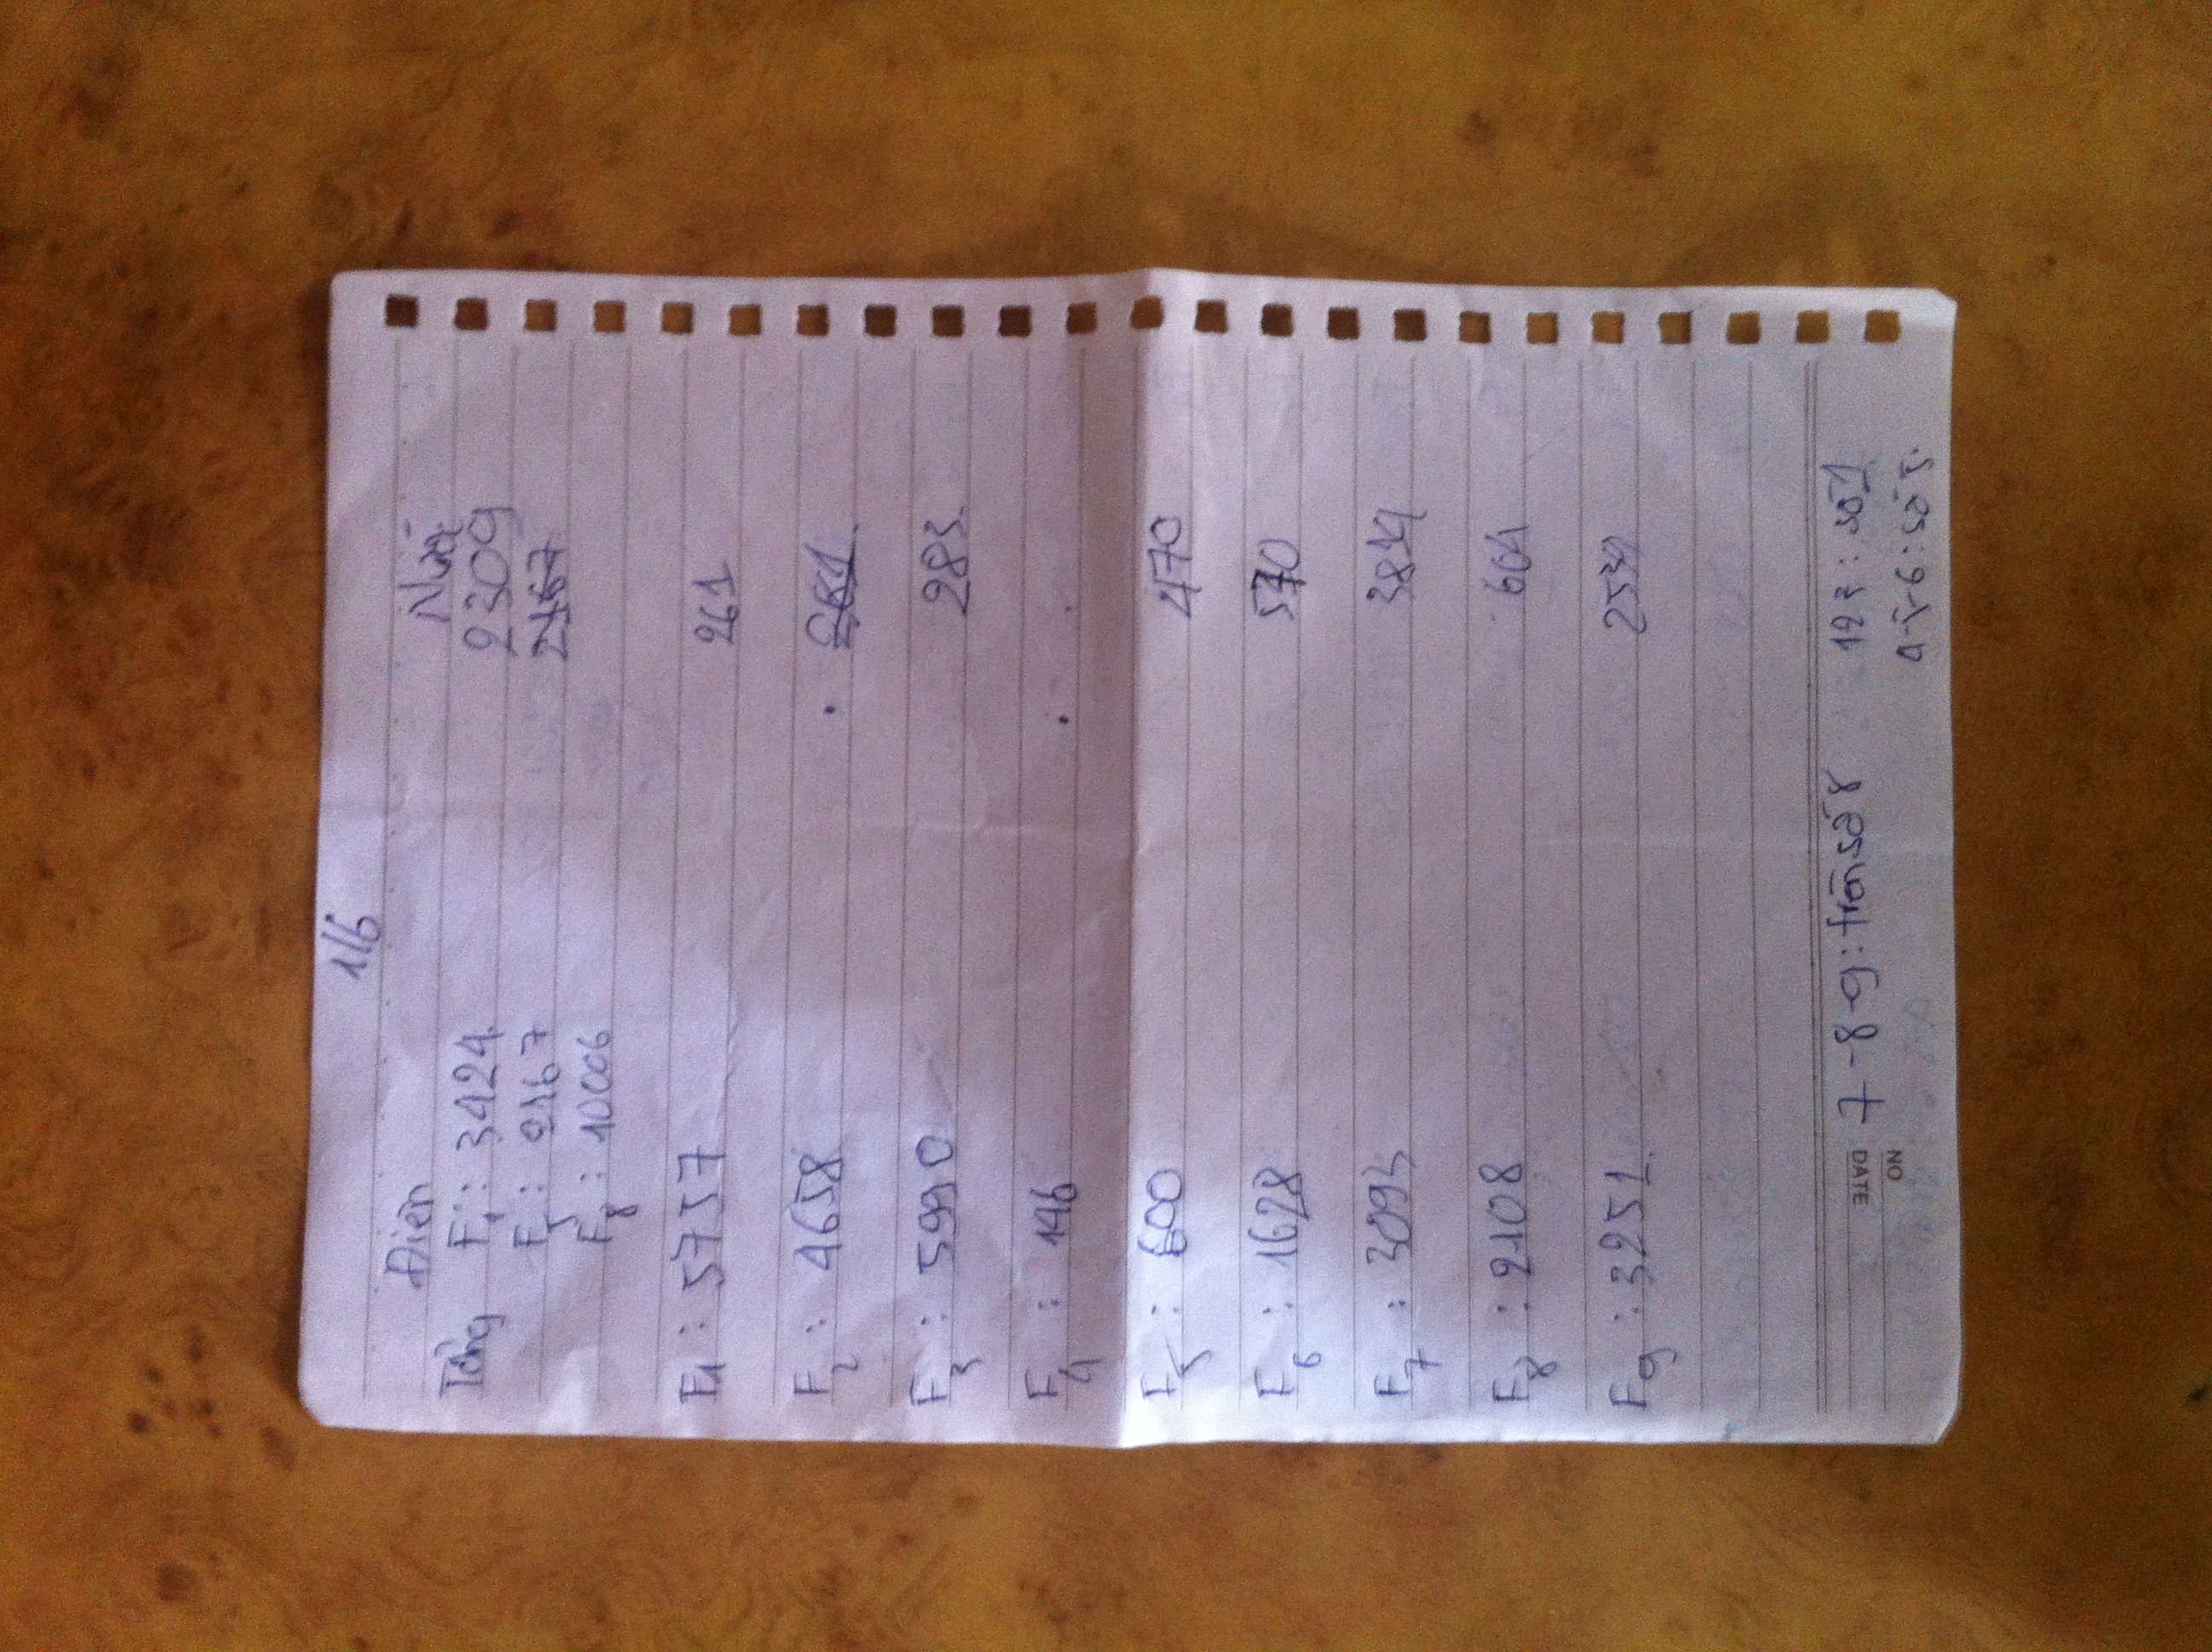 1/6
Điện Nước
Tổng F1: 3424 2309
F5: 2167 2167
F8: 10006
F1: 5757 261
F2: 4658 281
F3: 5990 283
F4: 146
F5: 600 470
F6: 1628 570
F7: 3093 3814
F8: 2108 604
F9: 3251
7-8-9: trên số 8 123: số 1
DATE 4-5-6: số 5
NO